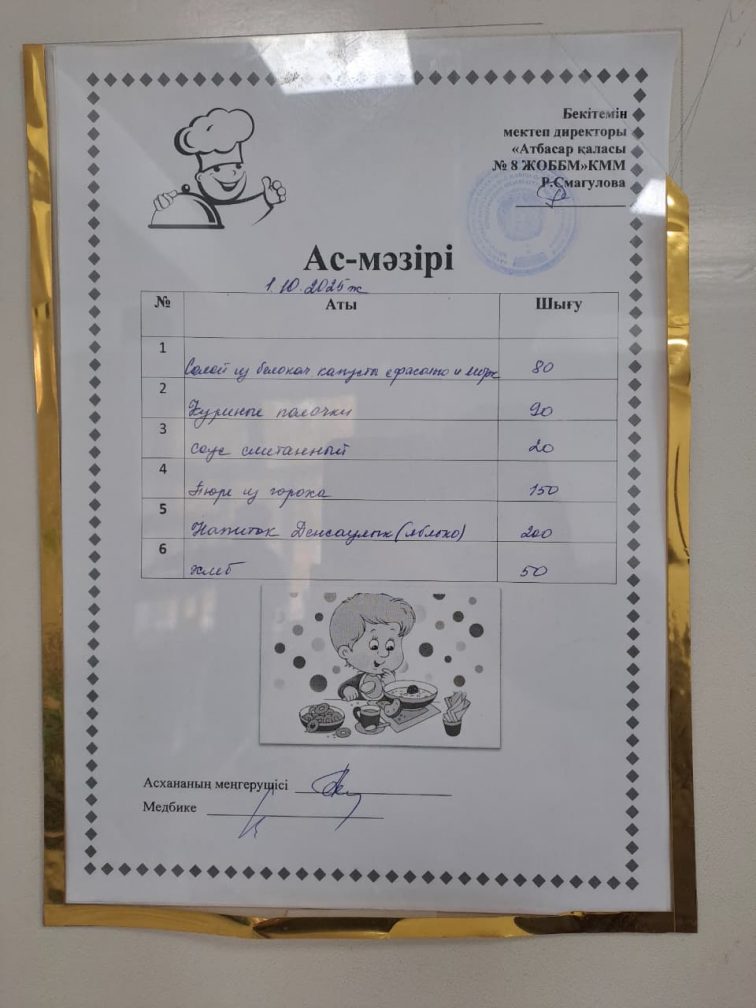 Бекітемін
мектеп директоры
«Атбасар қаласы
№ 8 ЖОББМ»КММ
Р.Смагулова
Ас-мәзірі
1.10.2025ж
№ Аты Шығу
1 Салат из белокач. капусты с фасолью и морк 80
2 Куриные палочки 90
3 Соус сметанный 20
4 Пюре из гороха 150
5 Напиток Денсаулык (яблоко) 200
6 хлеб 50
Асхананың меңгерушісі
Медбике